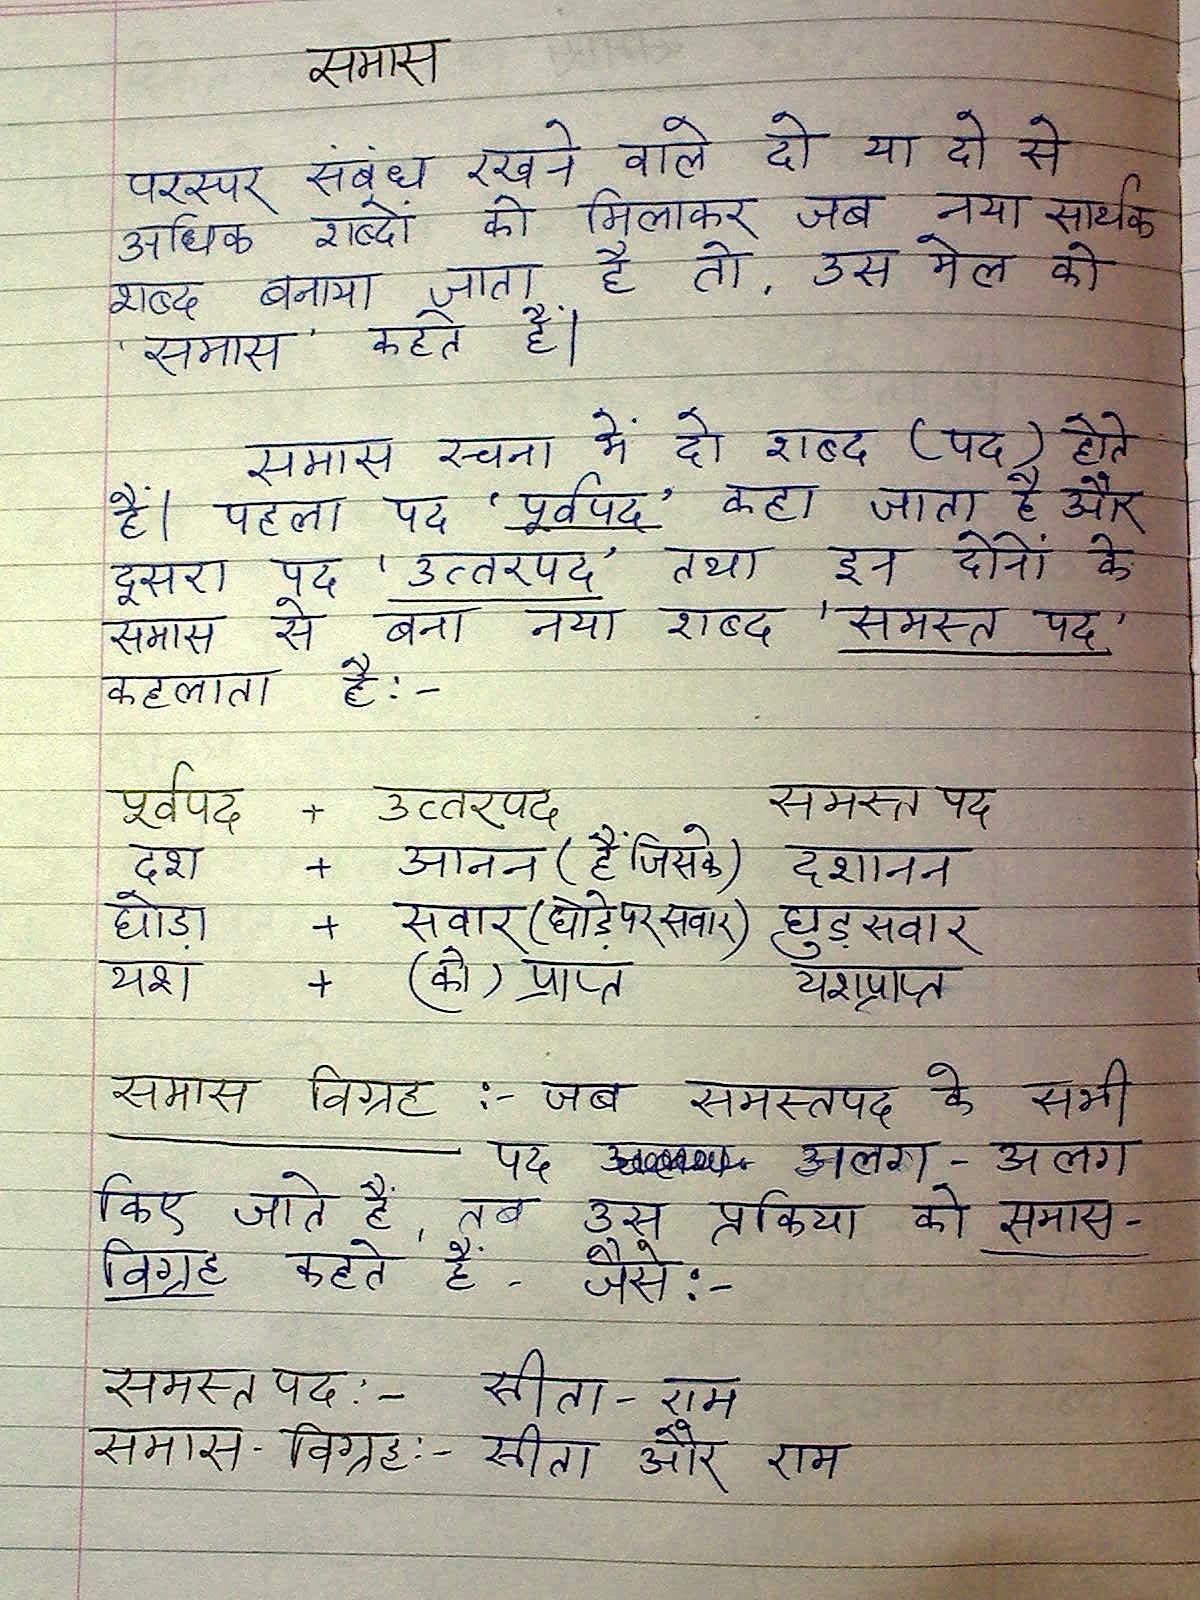 समास
परस्पर संबंध रखने वाले दो या दो से
अधिक शब्दों को मिलाकर जब नया सार्थक
शब्द बनाया जाता है तो, उस मेल को
'समास' कहते हैं।
समास रचना में दो शब्द (पद) होते
हैं। पहला पद 'पूर्वपद' कहा जाता है और
दूसरा पद 'उत्तरपद' तथा इन दोनों के
समास से बना नया शब्द 'समस्त पद'
कहलाता है:-
पूर्वपद + उत्तरपद समस्त पद
दश + आनन (हैं जिसके) दशानन
घोड़ा + सवार (घोड़े पर सवार) घुड़सवार
यश + (को) प्राप्त यशप्राप्त
समास विग्रह :- जब समस्तपद के सभी
पद अलग - अलग
किए जाते हैं, तब उस प्रकिया को समास-
विग्रह कहते हैं - जैसे:-
समस्त पद:- सीता - राम
समास - विग्रह:- सीता और राम